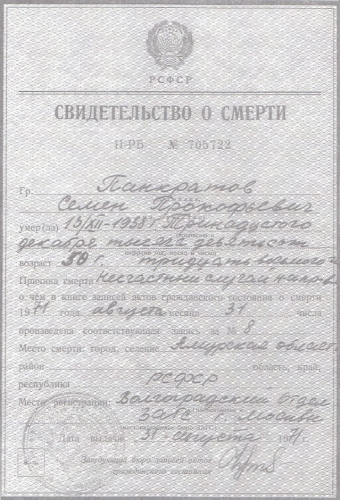 РСФСР
СВИДЕТЕЛЬСТВО О СМЕРТИ
II-РБ № 705722
Гр. Панкратов
Семен Прокофьевич
умер(ла) 13/XII-1938 г. Тринадцатого
декабря тысяча девятьсот
возраст 50 г. тридцать восьмого
Причина смерти Несчастный случай
о чём в книге записей актов гражданского состояния о смерти
1971 года августа месяца 31 числа
произведена соответствующая запись за № 8
Место смерти: город, селение Амурская област
район область, край,
республика РСФСР
Место регистрации: Волгоградский отдел
ЗАГС г. Москвы
Дата выдачи 31 августа 1971
Заведующий бюро записей актов
гражданского состояния